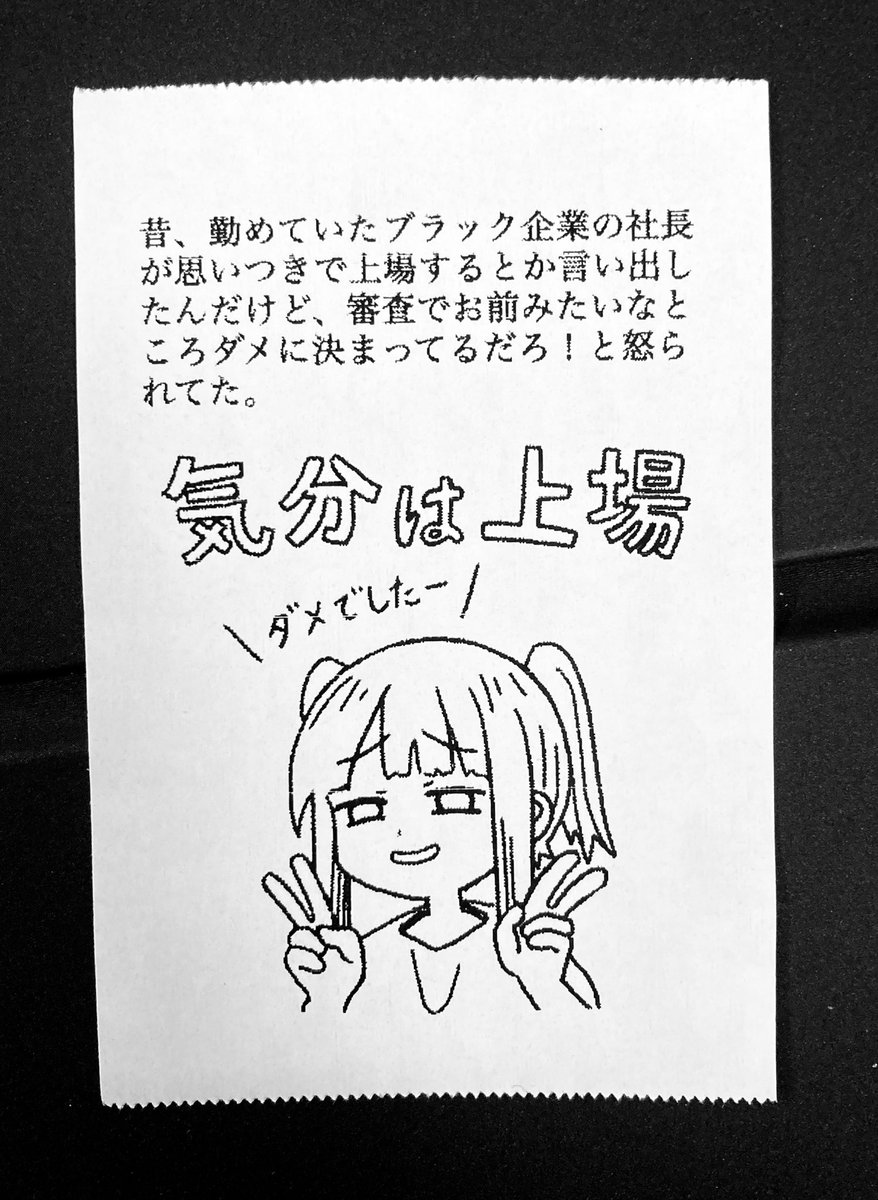 昔、勤めていたブラック企業の社長
が思いつきで上場するとか言い出し
たんだけど、審査でお前みたいなと
ころダメに決まってるだろ！と怒ら
れてた。
気分は上場
\ダメでしたー/